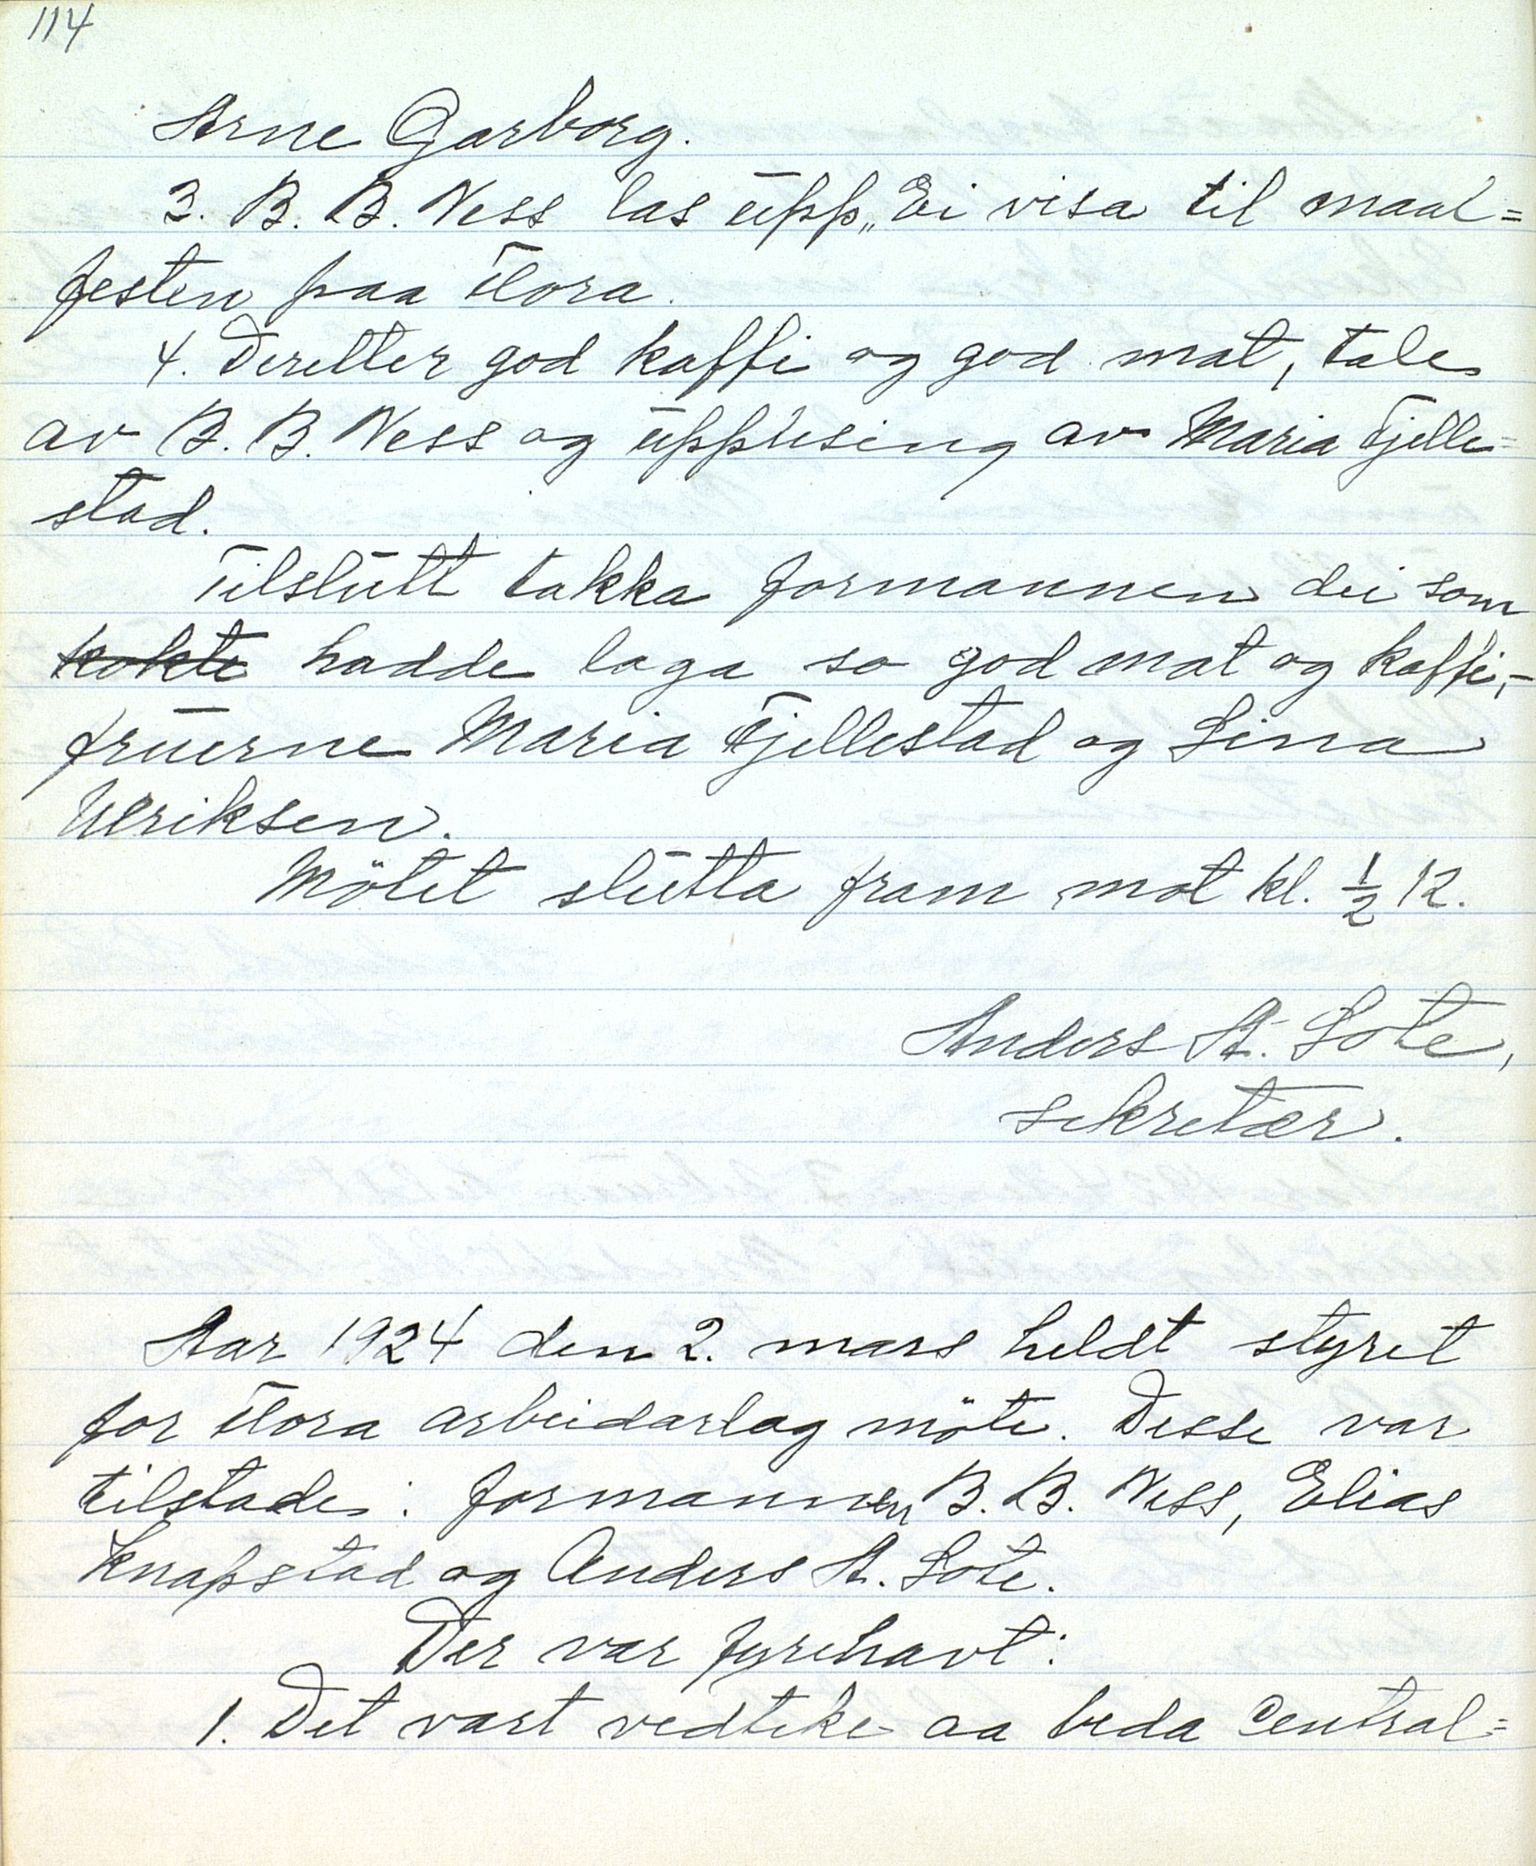 114
Arne Garborg.
3. B. B. Ness las upp „Ei visa til maal=
festen paa Flora.
4. Deretter god kaffi og god mat, tale
av B. B. Ness og upplesing av Maria Fjelle=
stad.
Tilslutt takka formannen dei som
kokte hadde laga so god mat og kaffi,-
fruerne Maria Fjellestad og Lina
Ulriksen.
Mötet slutta fram mot kl. ½ 12.
Anders A. Lote,
sekretær.
Aar 1924 den 2. mars heldt styret
for Flora arbeidarlag möte. Desse var
tilstade: formannen B. B. Ness, Elias
Knapstad og Anders A. Lote.
Der var fyrehavt:
1. Det vart vedteke aa beda Central=